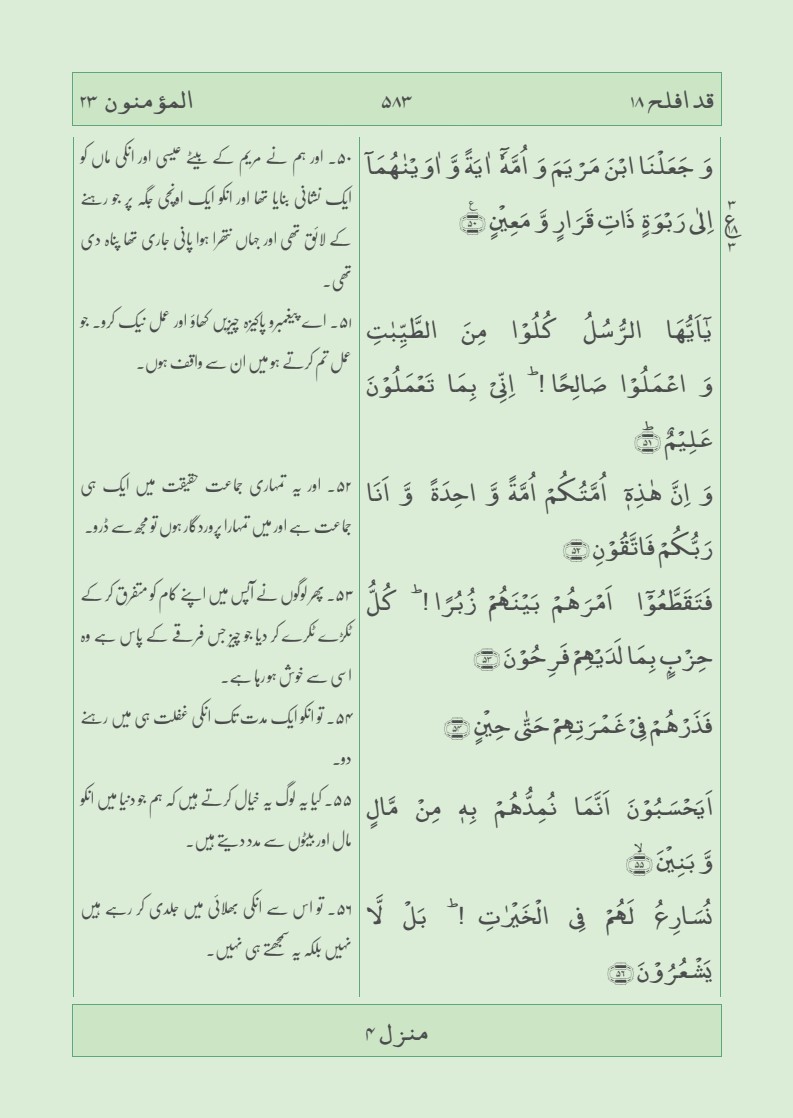 قد افلح ۱۸
۵۸۳
المؤمنون ۲۳
وَ جَعَلْنَا ابْنَ مَرْیَمَ وَ اُمَّہٗۤ اٰیَۃً وَّ اٰوَیْنٰہُمَاۤ
اِلٰی رَبْوَۃٍ ذَاتِ قَرَارٍ وَّ مَعِیْنٍ ﴿۵۰﴾
۳
ع
۱۸
۳
یٰۤاَیُّہَا الرُّسُلُ کُلُوْا مِنَ الطَّیِّبٰتِ
وَ اعْمَلُوْا صَالِحًا ! ؕ اِنِّیْ بِمَا تَعْمَلُوْنَ
عَلِیْمٌ ﴿ؕ۵۱﴾
وَ اِنَّ ہٰذِہٖۤ اُمَّتُکُمْ اُمَّۃً وَّ احِدَۃً وَّ اَنَا
رَبُّکُمْ فَاتَّقُوْنِ ﴿۵۲﴾
فَتَقَطَّعُوْۤا اَمْرَہُمْ بَیْنَہُمْ زُبُرًا ! ؕ کُلُّ
حِزْبٍۭ بِمَا لَدَیْہِمْ فَرِحُوْنَ ﴿۵۳﴾
فَذَرْہُمْ فِیْ غَمْرَتِہِمْ حَتّٰی حِیْنٍ ﴿۵۴﴾
اَیَحْسَبُوْنَ اَنَّمَا نُمِدُّہُمْ بِہٖ مِنْ مَّالٍ
وَّ بَنِیْنَ ﴿ۙ۵۵﴾
نُسَارِعُ لَہُمْ فِی الْخَیْرٰتِ ! ؕ بَلْ لَّا
یَشْعُرُوْنَ ﴿۵۶﴾
۵۰۔ اور ہم نے مریم کے بیٹے عیسی اور انکی ماں کو
ایک نشانی بنایا تھا اور انکو ایک اونچی جگہ پر جو رہنے
کے لائق تھی اور جہاں نتھرا ہوا پانی جاری تھا پناہ دی
تھی۔
۵۱۔ اے پیغمبرو پاکیزہ چیزیں کھاؤ اور عمل نیک کرو۔ جو
عمل تم کرتے ہو میں ان سے واقف ہوں۔
۵۲۔ اور یہ تمہاری جماعت حقیقت میں ایک ہی
جماعت ہے اور میں تمہارا پروردگار ہوں تو مجھ سے ڈرو۔
۵۳۔ پھر لوگوں نے آپس میں اپنے کام کو متفرق کر کے
ٹکڑے ٹکرے کر دیا جو چیز جس فرقے کے پاس ہے وہ
اسی سے خوش ہو رہا ہے۔
۵۴۔ تو انکو ایک مدت تک انکی غفلت ہی میں رہنے
دو۔
۵۵۔ کیا یہ لوگ یہ خیال کرتے ہیں کہ ہم جو دنیا میں انکو
مال اور بیٹوں سے مدد دیتے ہیں۔
۵۶۔ تو اس سے انکی بھلائی میں جلدی کر رہے ہیں
نہیں بلکہ یہ سمجھتے ہی نہیں۔
منزل ۴